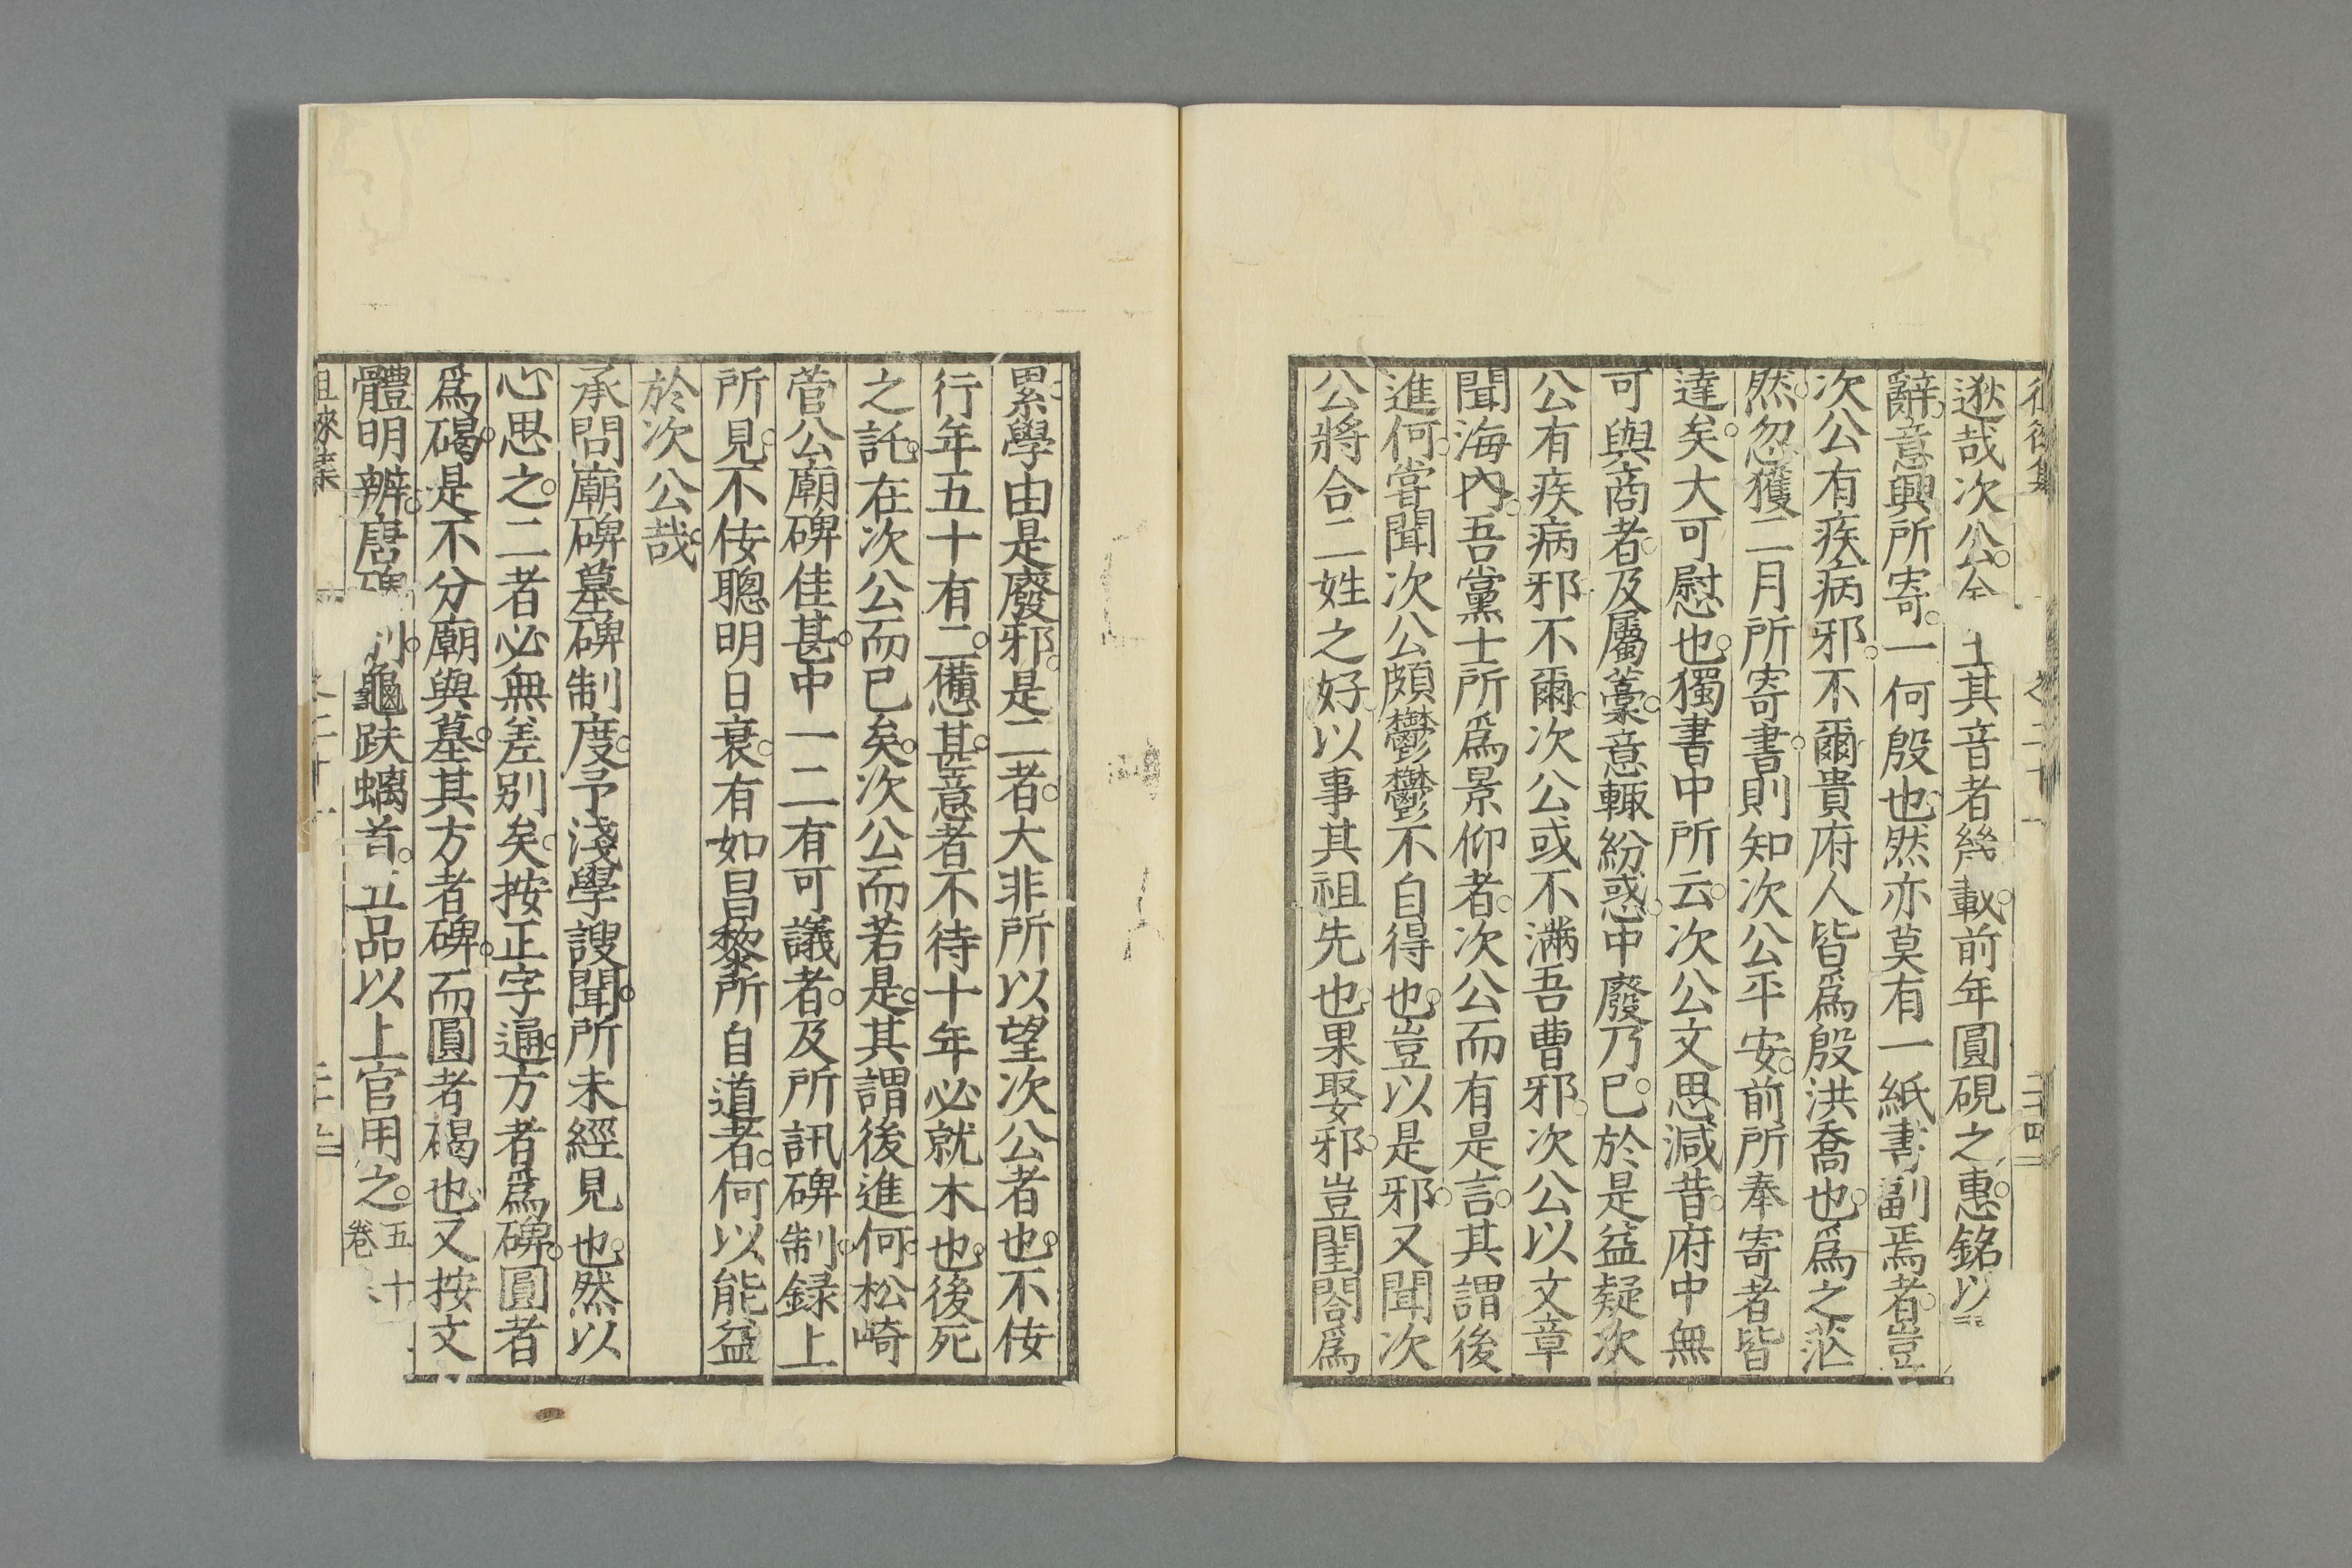 逖哉次公。今 其音者幾載。前年圓硯之惠。銘以
辭。意興所寄。一何殷也。然亦莫有一紙書副焉者。豈
次公有疾病邪。不爾貴府人皆爲殷洪喬也。爲之茫
然。忽獲二月所寄書。則知次公平安。前所奉寄者皆
達矣。大可慰也。獨書中所云。次公文思減昔。府中無
可與商者。及屬藁。意輙紛惑。中廢乃已。於是益疑次
公有疾病邪。不爾。次公或不滿吾曹邪。次公以文章
聞海內。吾黨士所爲景仰者。次公而有是言。其謂後
進何。嘗聞次公頗鬱鬱不自得也。豈以是邪。又聞次
公將合二姓之好。以事其祖先也。果娶邪。豈閨閤爲
累。學由是廢邪。是二者。大非所以望次公者也。不佞
行年五十有二。憊甚。意者不待十年必就木也。後死
之託。在次公而已矣。次公而若是。其謂後進何。松崎
菅公廟碑佳甚。中一二有可議者。及所訊碑制。録上
所見。不佞聰明日衰。有如昌黎所自道者。何以能益
於次公哉。
承問廟碑墓碑制度。予淺學謏聞。所未經見也。然以
心思之。二者必無差別矣。按正字通。方者爲碑。圓者
爲碣。是不分廟與墓。其方者碑。而圓者碣也。又按文
體明辨。唐碑制。龜趺螭首。五品以上官用之。五十
卷
徂徠集